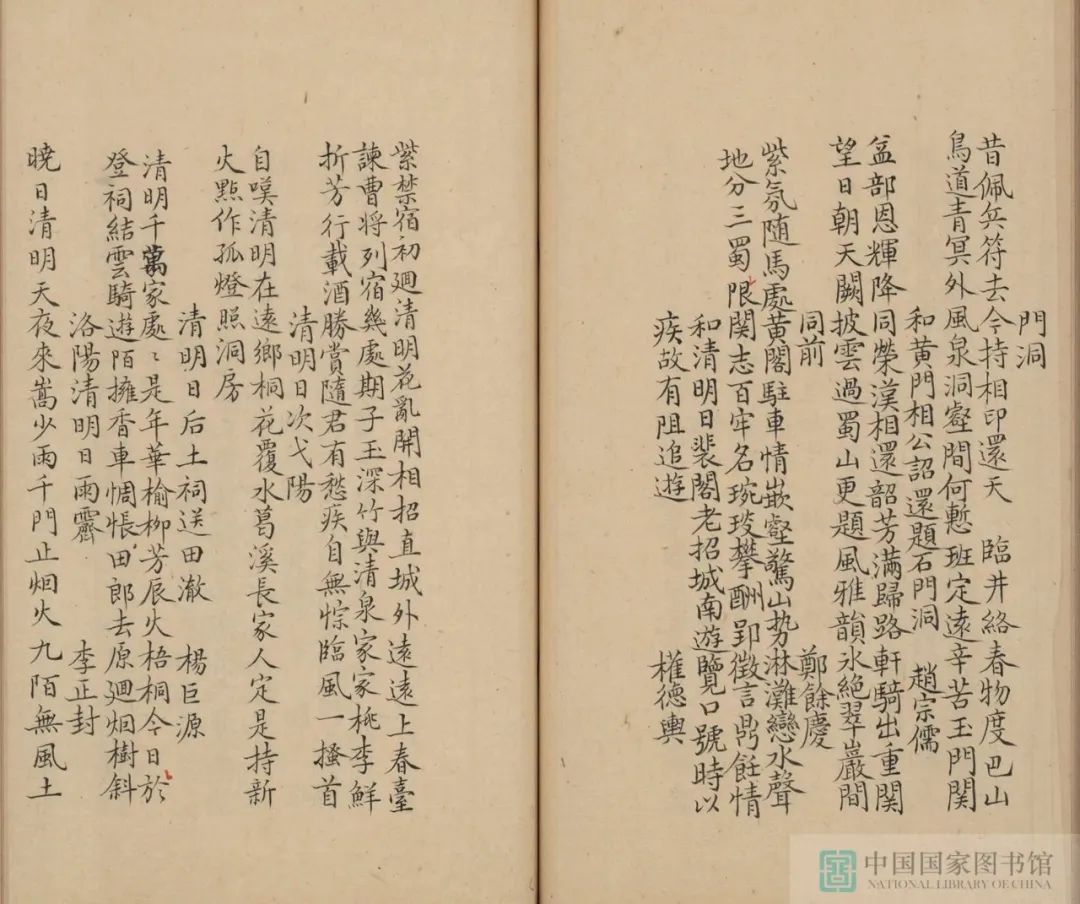 門洞
昔佩兵符去今持相印還天　臨井絡春物度巴山
鳥道青冥外風泉洞壑間何慙班定遠辛苦玉門関
和黄門相公詔還題石門洞　趙宗儒
益部恩輝降同榮漢相還韶芳滿歸路軒騎出重関
望日朝天闕披雲過蜀山更題風雅韻永絕翠巖間
同前　鄭餘慶
紫氛随馬處黄閣駐車情嵌壑驚山势淋灘戀水聲
地分三蜀限関志百牢名琬琰攀酬郢徵言鼎飪情
和清明日裴閣老招城南遊覽口號時以
疾故有阻追遊　權德輿
紫禁宿初廻清明花亂開相招直城外遠遠上春臺
諫曹将列宿幾處期子玉深竹與清泉家家桃李鮮
折芳行載酒勝賞隨君有愁疾自無悰臨風一搔首
清明日次弋陽
自嘆清明在遠鄉桐花覆水葛溪長家人定是持新
火點作孤燈照洞房
清明日后土祠送田澈　楊巨源
清明千萬家處〻是年華榆柳芳辰火梧桐今日於
登祠結雲騎遊陌擁香車惆悵田郎去原廻烟樹斜
洛陽清明日雨霽　李正封
曉日清明天夜來嵩少雨千門止烟火九陌無風土
中国国家图书馆
NATIONAL LIBRARY OF CHINA